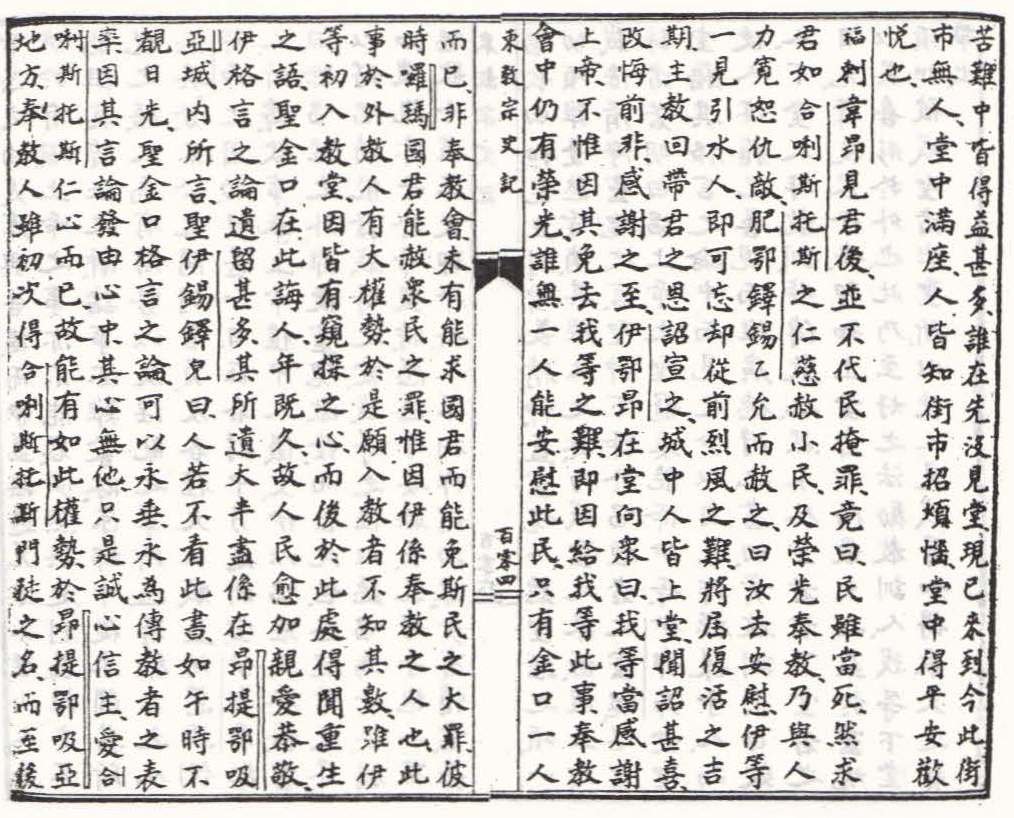 苦難中皆得益甚多誰在先沒見堂、現已來到今此街
市無人、堂中滿座、人皆知街市招煩惱堂中得平安歡
悅也、
福剌韋昂見君後、並不代民掩罪、竟曰、民雖當死、然求
君如合唎斯托斯之仁慈赦小民、及榮光奉教、乃與人
力寬恕仇敵、肥鄂鐸錫乙允而赦之、曰汝去安慰伊等
一見引水人、即可忘却從前烈風之難將屆復活之吉
期、主教回帶君之恩詔宣之、城中人皆上堂、聞詔甚喜、
改悔前非、感謝之至、伊鄂昂在堂向衆曰、我等當感謝
上帝、不惟因其免去我等之難、即因給我等此事、奉教
會中仍有榮光、誰無一人能安慰此民、只有金口一人
東教宗史記
百零四
而已、非奉教會、未有能求國君而能免斯民之大罪、彼
時囉瑪國君能赦衆民之罪、惟因伊係奉教之人也、此
事於外教人有大權勢、於是願入教者不知其數、雖伊
等初入教堂、因皆有窺探之心、而後於此處得聞重生
之語、聖金口在此誨人、年既久、故人民愈加親愛恭敬、
伊格言之論遺留甚多、其所遺大半盡係在昂提鄂吸
亞城內所言、聖伊錫鐸兒曰、人若不看此書、如午時不
觀日光、聖金口格言之論可以永垂、永為傳教者之表
率因其言論發由心中、其心無他、只是誠心信主、愛合
唎斯托斯仁心而已、故能有如此權勢、於昂提鄂吸亞
地方奉教人雖初次得合唎斯托斯門徒之名、而至後